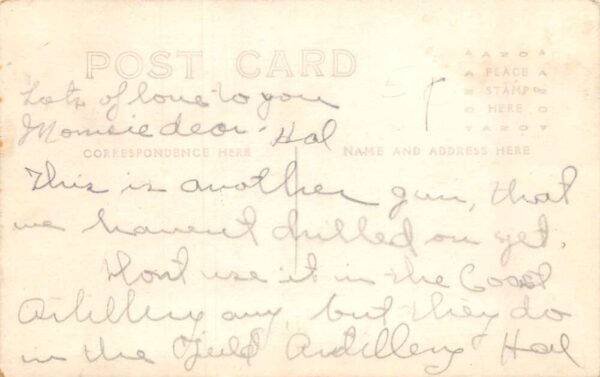 POST CARD
AZOA
PLACE
STAMP
HERE
AZO
Lots of love to you
Momsie dear. Hal
CORRESPONDENCE HERE
NAME AND ADDRESS HERE
This is another gun, that
we haven't drilled on yet.
Dont use it in the Coast
Artillery any, but they do
in the Field Artillery Hal